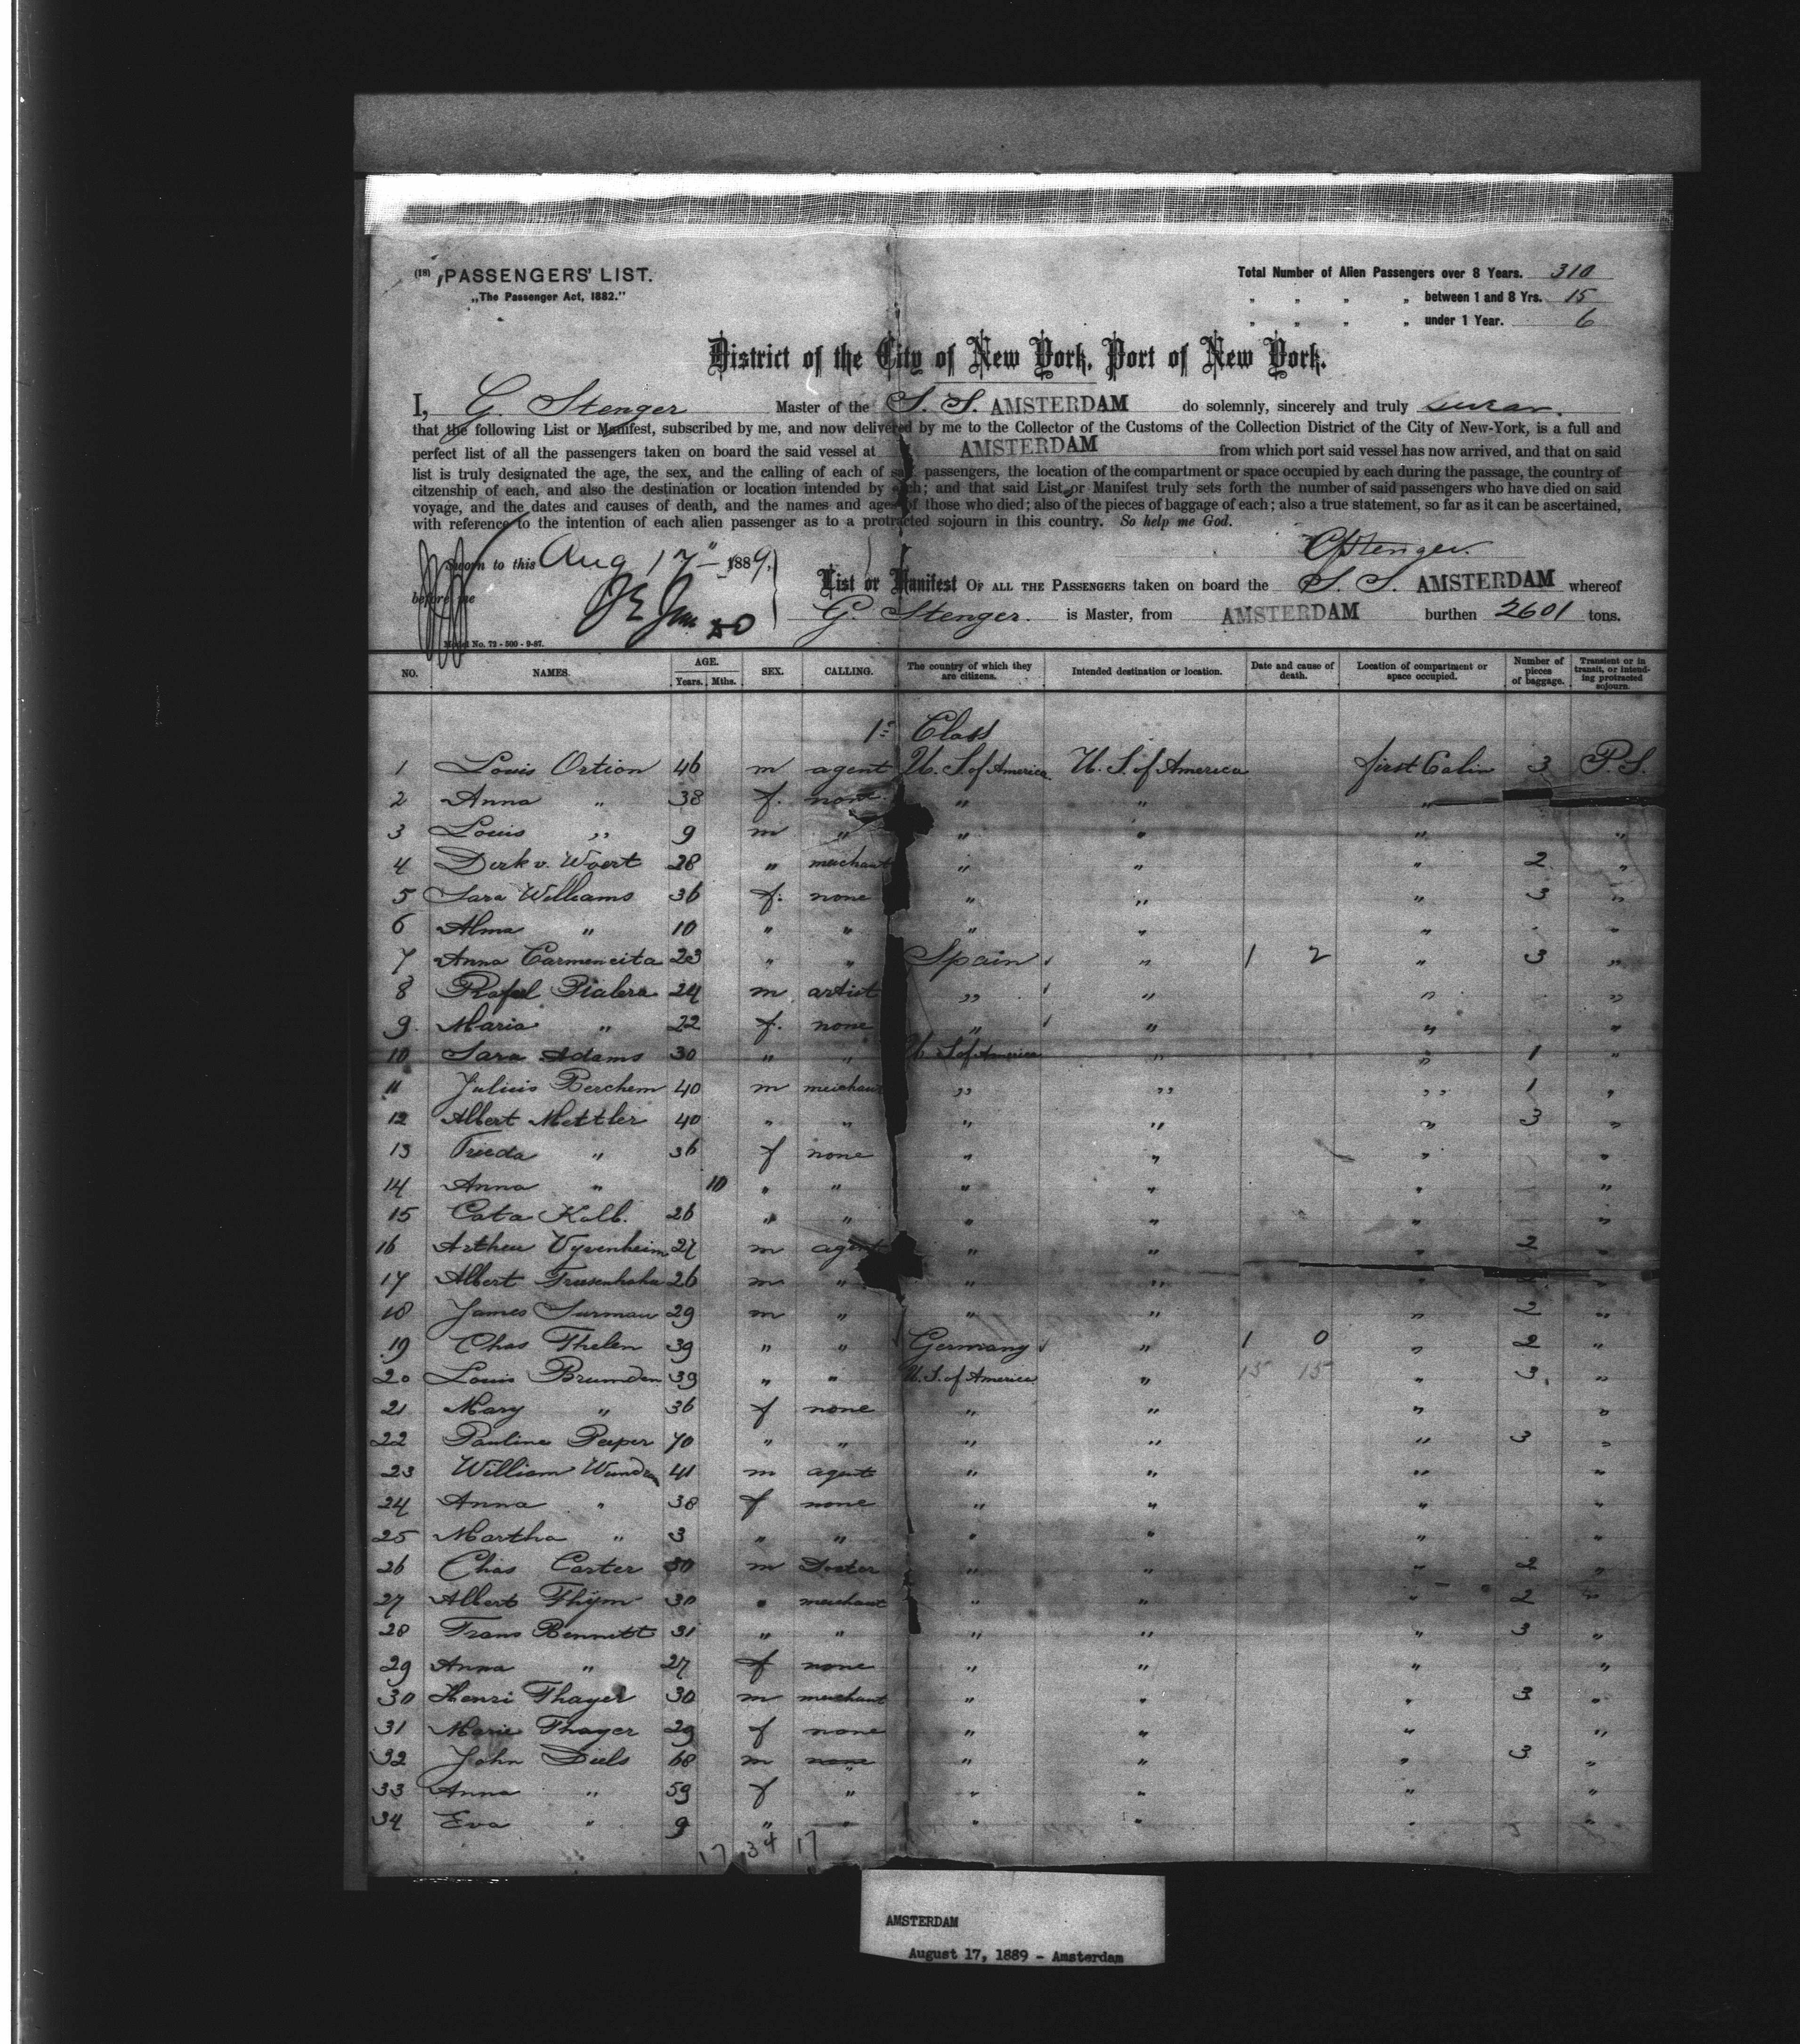 (18) PASSENGERS' LIST.
„The Passenger Act, 1882."
Total Number of Alien Passengers over 8 Years. 310
„ „ „ „ between 1 and 8 Yrs. 15
„ „ „ „ under 1 Year. 6
District of the City of New York, Port of New York.
I, G. Stenger Master of the S. S. AMSTERDAM do solemnly, sincerely and truly swear
that the following List or Manifest, subscribed by me, and now delivered by me to the Collector of the Customs of the Collection District of the City of New-York, is a full and
perfect list of all the passengers taken on board the said vessel at AMSTERDAM from which port said vessel has now arrived, and that on said
list is truly designated the age, the sex, and the calling of each of said passengers, the location of the compartment or space occupied by each during the passage, the country of
citzenship of each, and also the destination or location intended by each; and that said List or Manifest truly sets forth the number of said passengers who have died on said
voyage, and the dates and causes of death, and the names and ages of those who died; also of the pieces of baggage of each; also a true statement, so far as it can be ascertained,
with reference to the intention of each alien passenger as to a protracted sojourn in this country. So help me God.
GStenger.
Sworn to this Aug 17" 1889,
before me
List or Manifest OF ALL THE PASSENGERS taken on board the S. S. AMSTERDAM whereof
G. Stenger. is Master, from AMSTERDAM burthen 2601 tons.
Model No. 72 - 500 - 9-87.
NO. NAMES. AGE. Years. Mths. SEX. CALLING. The country of which they are citizens. Intended destination or location. Date and cause of death. Location of compartment or space occupied. Number of pieces of baggage. Transient or in transit, or intending protracted sojourn.
1e Class
1 Louis Ortion 46 m agent U. S. of America U. S. of America first Cabin 3 P. S.
2 Anna " 38 f. none " " "
3 Louis " 9 m " " " " "
4 Dirk v. Woert 28 " merchant " " " 2 "
5 Sara Williams 36 f. none " " " 3 "
6 Alma " 10 " " " " " "
7 Anna Carmencita 23 " " Spain " 1 2 " 3 "
8 Rafael Pialera 24 m artist " " " "
9. Maria " 22 f. none " " " "
10 Sara Adams 30 " " U. S. of America " " 1 "
11 Julius Berchem 40 m merchant " " " 1 "
12 Albert Mettler 40 " " " " " 3 "
13 Frieda " 36 f none " " " "
14 Anna " 10 " " " " " "
15 Cata Kolb. 26 " " " " " "
16 Arthur Vyvenheim 27 m agent " " " 2 "
17 Albert 26 m " " " " 2 "
18 James Surman 29 m " " " " 2 "
19 Chas Thelen 39 " " Germany " 1 0 " 2 "
20 Louis Brumder 39 " " U. S. of America " 15 15 " 3 "
21 Mary " 36 f none " " " "
22 Pauline Peper 70 " " " " " 3 "
23 William 41 m agent " " " "
24 Anna " 38 f none " " " "
25 Martha " 3 " " " " " "
26 Chas Carter 30 m Doctor " " " 2 "
27 Albert Thym 30 " merchant " " " 2 "
28 Frans Bennett 31 " " " " " 3 "
29 Anna " 27 f none " " " "
30 Henri Thayer 30 m merchant " " " 3 "
31 Marie Thayer 29 f none " " " "
32 John Diels 68 m none " " " 3 "
33 Anna " 59 f " " " " "
34 Eva " 9 " " " " "
17 34 17
AMSTERDAM
August 17, 1889 - Amsterdam